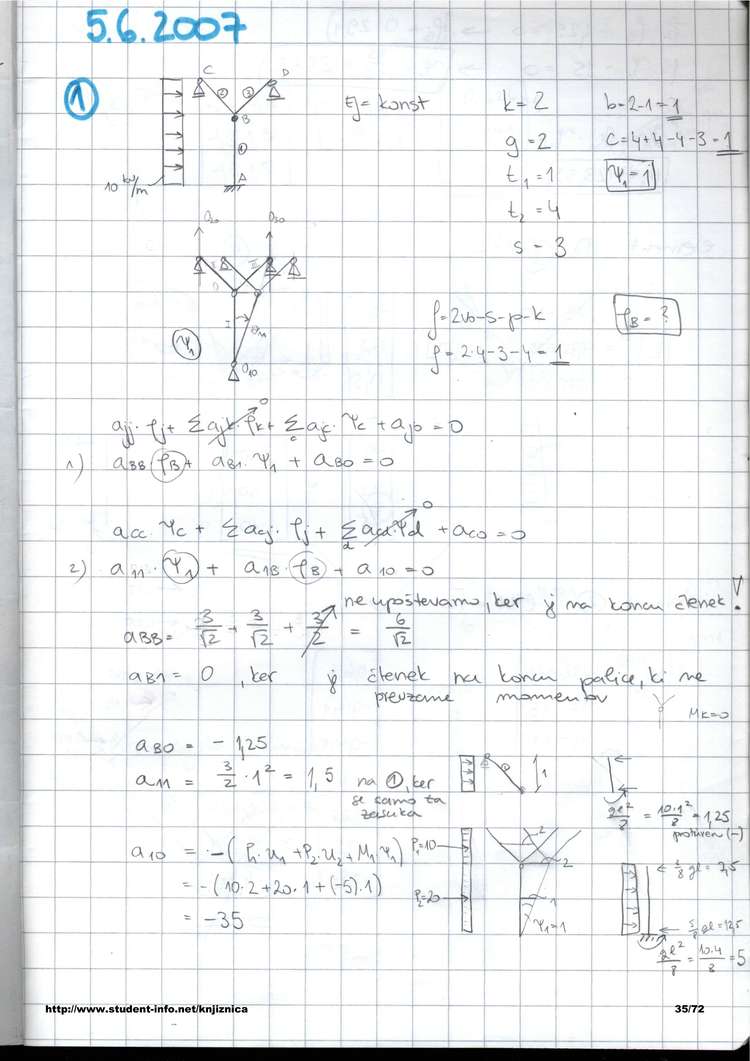 5.6.2007
1
C D
2 3
B
1
A
10 kN/m
EJ = konst
k = 2
g = 2
t₁ = 1
t₂ = 4
s = 3
b = 2-1 = 1
C = 4+4-4-3 = 1
ψ₁ = 1
O₂₀ O₃₀
I
O₁₀
ψ₁
f = 2v₀-s-p-k
f = 2·4-3-4 = 1
φB = ?
ajj · φj + Σ ajk · φk + Σ ajc · ψc + ajo = 0
0
c
1) aBB φB + aB1 · ψ₁ + aB0 = 0
0
acc · ψc + Σ acj · φj + Σ acd · ψd + aco = 0
d
2) a₁₁ · ψ₁ + a₁B · φB + a₁₀ = 0
aBB = 3/√2 + 3/√2 + 3/2 = 6/√2
ne upoštevamo, ker je na koncu členek!
aB1 = 0, ker je členek na koncu palice, ki ne
prevzame momentov
MK=0
aB0 = -1,25
a₁₁ = 3/2 · 1² = 1,5 na ①, ker
se samo ta
zasuka
1
gl²/8 = 10·1²/8 = 1,25
protiuren (-)
a₁₀ = -(P₁·u₁ + P₂·u₂ + M₁ψ₁)
= -(10·2+20·1+(-5)·1)
= -35
P₁=10
P₂=20
2
2
1
ψ₁=1
3/8 gl = 7,5
5/8 gl = 12,5
gl²/8 = 10·4/8 = 5
http://www.student-info.net/knjiznica
35/72